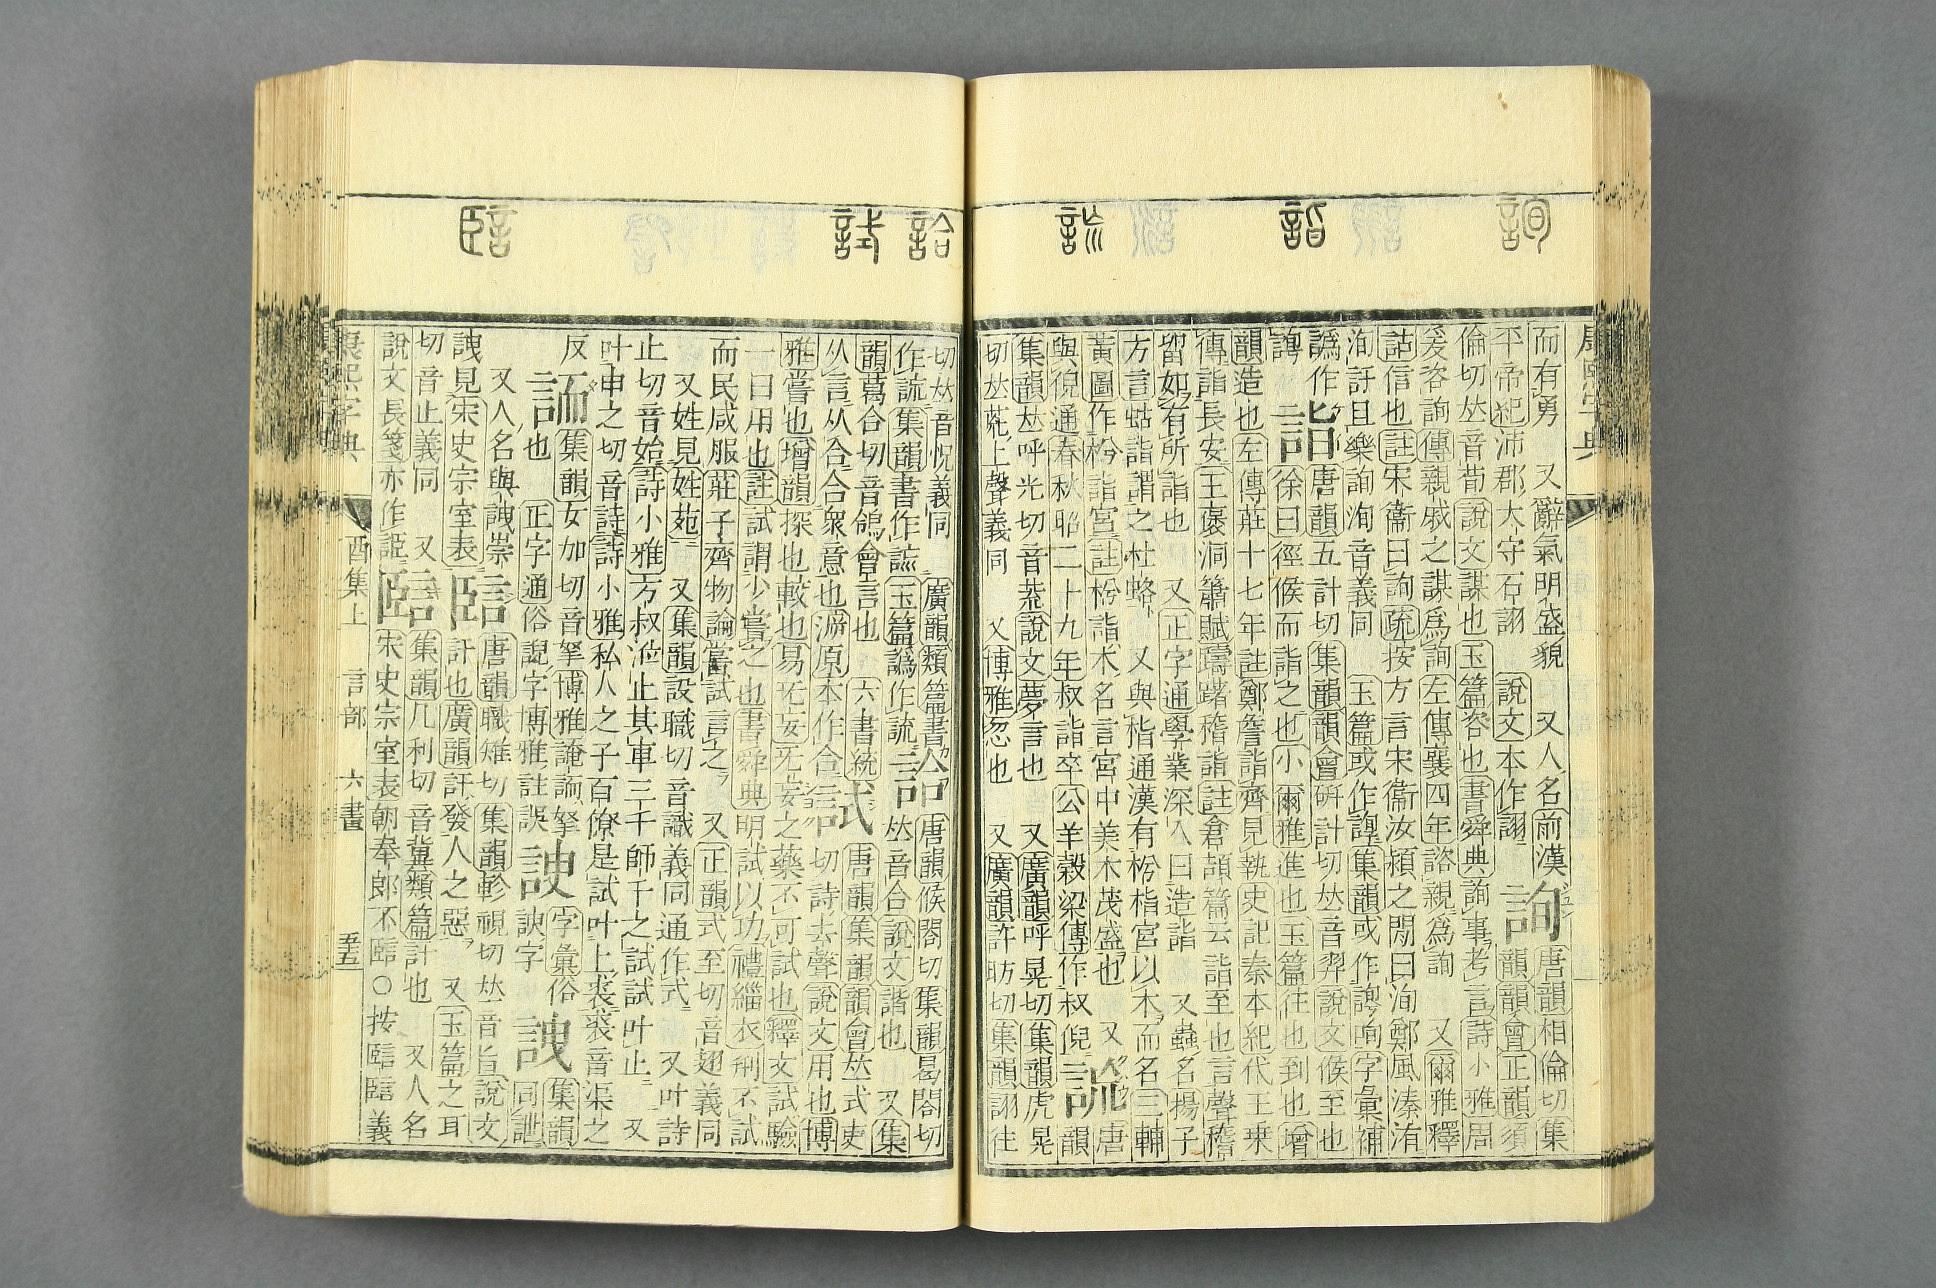 詢 詣 詤
康熙字典
而有勇 又辭氣明盛貌 又人名前漢 詢 唐韻相倫切集
平帝紀沛郡太守石詡 說文本作 韻韻會正韻須
倫切𠀤音荀說文謀也玉篇咨也書舜典詢事考言詩小雅周
爰咨詢傳親戚之謀爲詢左傳襄四年諮親爲詢 又爾雅釋
詁信也註宋衞曰詢疏按方言宋衞汝潁之閒曰洵鄭風溱洧
洵訏且樂詢洵音義同 玉篇或作 集韻或作 咰字彙補
譌作 詣 唐韻五計切集韻韻會硏計切𠀤音羿說文候至也
徐曰徑候而詣之也小爾雅進也玉篇往也到也增
韻造也左傳莊十七年註鄭詹詣齊見執史記秦本紀代王乗
傳詣長安王褒洞簫賦躊躇稽詣註倉頡篇云詣至也言聲稽
留如有所詣也 又正字通學業深入曰造詣 又蟲名揚子
方言蛄詣謂之杜蛒 又與栺通漢有枍栺宮以木而名三輔
黃圖作枍詣宮註枍詣木名言宮中美木茂盛也 又 詤 唐
與倪通春秋昭二十九年叔詣卒公羊穀梁傳作叔倪 韻
集韻𠀤呼光切音荒說文夢言也 又廣韻呼晃切集韻虎晃
切𠀤 上聲義同 又博雅忽也 又廣韻許昉切集韻詡往
詥 試
切𠀤音怳義同 廣韻類篇書 詥 唐韻候閤切集韻曷閤切
作 集韻書作 玉篇譌作 𠀤音合說文諧也 又集
韻葛合切音鴿會言也 六書統 試 唐韻集韻韻會𠀤式吏
从言从合合衆意也 原本作合 切詩去聲說文用也博
雅嘗也增韻探也較也易无妄无妄之藥不可試也釋文試驗
一曰用也註試謂少嘗之也書舜典明試以功禮緇衣刑不試
而民咸服莊子齊物論嘗試言之 又正韻式至切音翅義同
又姓見姓苑 又集韻設職切音識義同通作式 又叶詩
止切音始詩小雅方叔涖止其車三千師干之試試叶止 又
叶申之切音詩詩小雅私人之子百僚是試叶上裘裘音渠之
反 集韻女加切音拏博雅 拏 字彙俗 集韻
也 正字通俗 字博雅註誤 字 同詍
又人名與 崇 唐韻職雉切集韻軫視切𠀤音旨說文
見宋史宗室表 計也廣韻訐發人之惡 又玉篇之耳
切音止義同 又 集韻几利切音冀類篇計也 又人名
說文長箋亦作 宋史宗室表朝奉郎不 ○按 義
康熙字典 酉集上 言部 六畫 五五